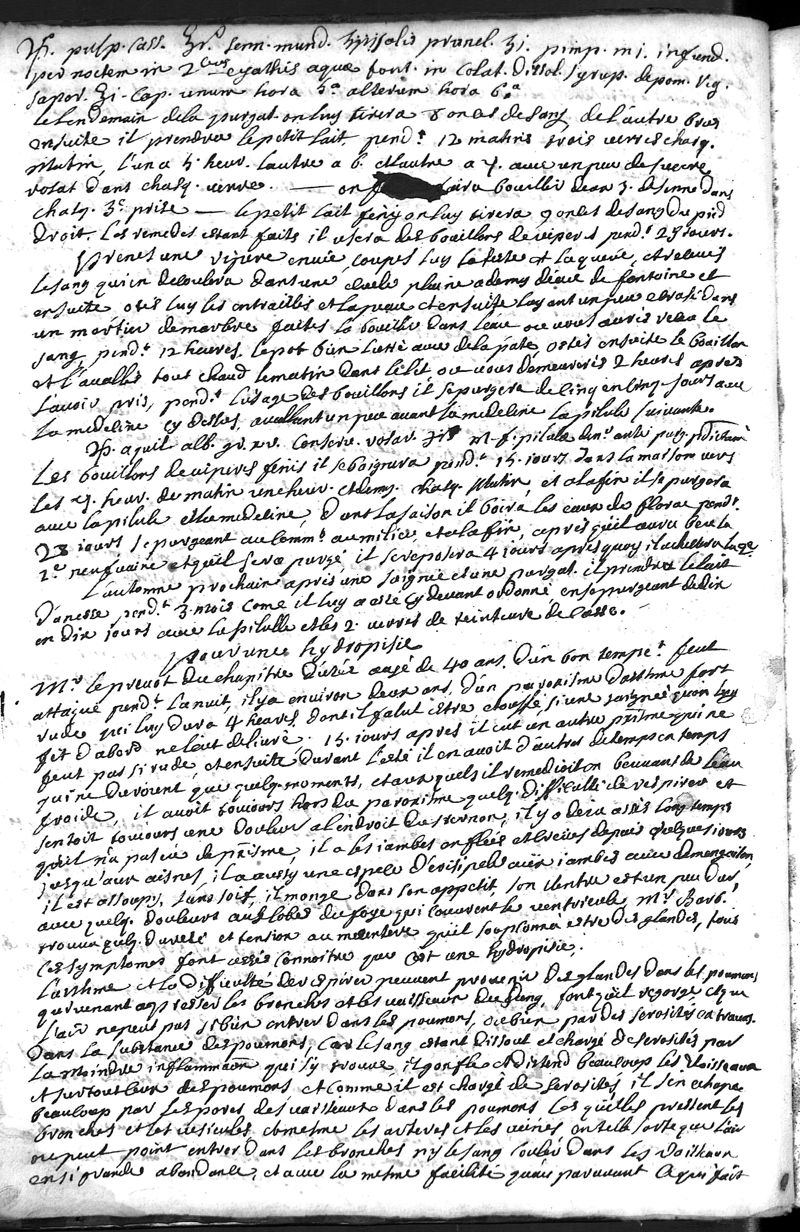 pulp. cass. senn. mund. prunel. pimp. m i. infund.
per noctem in 2bus cyathis aquæ font. in colat. dissol. syrup. de pom. reg.
sapor. cap. unum hora 5a alterum hora 6a
le lendemain de la purgat. on luy tirera onces de sang de l'autre bras
ensuite il prendra le petit lait pendt 12 matins trois verres chaq.
matin, l'un a 5 heur. l'autre a 6. et l'autre a 7. avec un peu de sucre
rosat dans chaq. verre. — on faira bouillir deux 3. de senne dans
chaq. 3e prise — le petit lait finy on luy tirera 9 onces de sang du pied
droit. Les remedes estant faits il usera des bouillons de viperes pendt 25 jours.
Prenes une vipere en vie, coupes luy la teste et la queue, et receves
le sang qui en decoulera dans une ecuelle pleine a demy d'eau de fontaine et
ensuite otes luy les entrailles et la peau et ensuite layant un peu ecrasé dans
un mortier de marbre faites la bouillir dans l'eau ou vous aures receu le
sang pendt 12 heures, le pot bien lutté avec de la pate, otes ensuite le bouillon
et l'avalles tout chaud le matin dans le lit ou vous demeureres 2 heures apres
l'avoir pris, pendt l'usage des bouillons il se purgera de cinq en cinq jours avec
la medecine cy dessus avallant un peu avant la medecine la pilule suivante.
aquil. alb. gr. xv. conserv. rosar. m. f. pilula ante purg.
Les bouillons de viperes finis il se baignera pendt 15. jours dans la maison vers
les heur. du matin une heur. et demy chaq. matin, et a la fin il se purgera
avec la pilule et la medecine, dans la saison il boira les eaux de pendt
23 jours se purgeant au commt au milieu, et a la fin, apres quil aura beu la
neufvaine et quil sera purgé, il se reposera 4 jours apres quoy il achevera
L'automne prochain apres une saignée et une purgat. il prendra le lait
d'anesse pendt 3. mois come il luy a esté cy devant ordonné en se purgeant de dix
en dix jours avec la pilulle et les 2. verres de teinture de casse.
pour une hydropisie
Mr le prevot du chapitre agé de 40 ans, d'un bon tempt feut
attaqué pendt la nuit, il y a environ deux ans, d'un paroxisme d'asthme fort
rude qui luy dura 4 heures dont il falut estre etouffé si une saignée quon luy
fit d'abord ne l'eut delivré. 15. jours apres il eut un autre prisme qui ne
feut pas si rude, et ensuite durant l'eté il en avoit d'autres de temps en temps
qui ne duroient que quelq. moments, et auxquels il remedioit en beuvant de l'eau
froide, il avoit toujours hors du paroxisme quelq. difficulté de respirer et
sentoit toujours une douleur a l'endroit du sternon, il y a deja assés long temps
quil n'a pas eu de prisme, il a les jambes enflées et depuis quelques jours
jusqu'aux aisnes, il a aussy une espece d'erisipele aux jambes avec demengeaison
il est assoupy, sans soif, il mange dans son appetit, son ventre est un peu dur
avec quelq. douleurs au globe du foye qui couvrent le ventricule Mr Barb.
trouva quelq. dureté et tension au mesentere quil soupçonna estre des glandes, tous
ces symptomes font assés connoitre que c'est une hydropisie.
L'asthme et la difficulté de respirer peuvent provenir des glandes dans les poumons
qui venant a presser les bronches et les vaisseaux du sang, font quil regorge et que
l'air ne peut pas si bien entrer dans les poumons, ou bien par des serosités extravas.
dans la substance des poumons, car le sang estant dissout et chargé de serosités par
la moindre inflammaon qui s'y trouve, il gonfle et distend beaucoup les vaisseaux
et surtout ceux des poumons et comme il est chargé de serosités il s'en echape
beaucoup par les pores des vaisseaux dans les poumons lesquelles pressent les
bronches et les vesicules comesme les arteres et les veines en telle sorte que l'air
ne peut point entrer dans les bronches ny le sang couler dans les vaisseaux
en si grande abondance, et avec la mesme facilité qu'auparavant